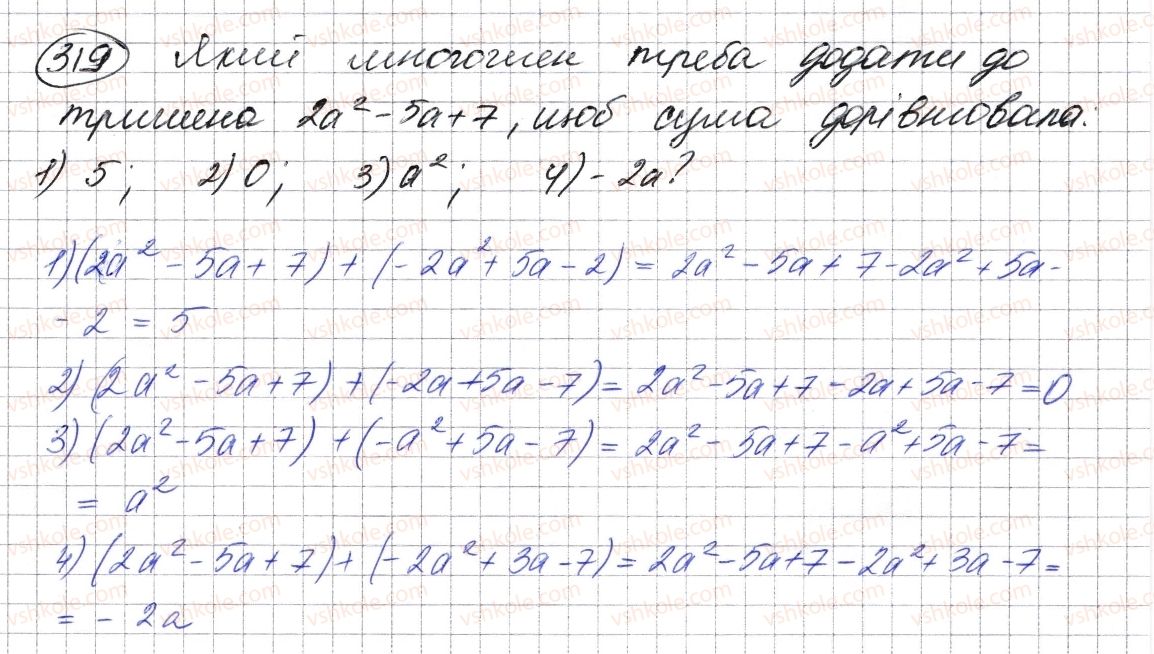 319 Який многочлен треба додати до
тричлена 2a² - 5a + 7, щоб сума дорівнювала:
1) 5; 2) 0; 3) a²; 4) - 2a?
1) (2a² - 5a + 7) + (- 2a² + 5a - 2) = 2a² - 5a + 7 - 2a² + 5a -
- 2 = 5
2) (2a² - 5a + 7) + (- 2a + 5a - 7) = 2a² - 5a + 7 - 2a + 5a - 7 = 0
3) (2a² - 5a + 7) + (- a² + 5a - 7) = 2a² - 5a + 7 - a² + 5a - 7 =
= a²
4) (2a² - 5a + 7) + (- 2a² + 3a - 7) = 2a² - 5a + 7 - 2a² + 3a - 7 =
= - 2a